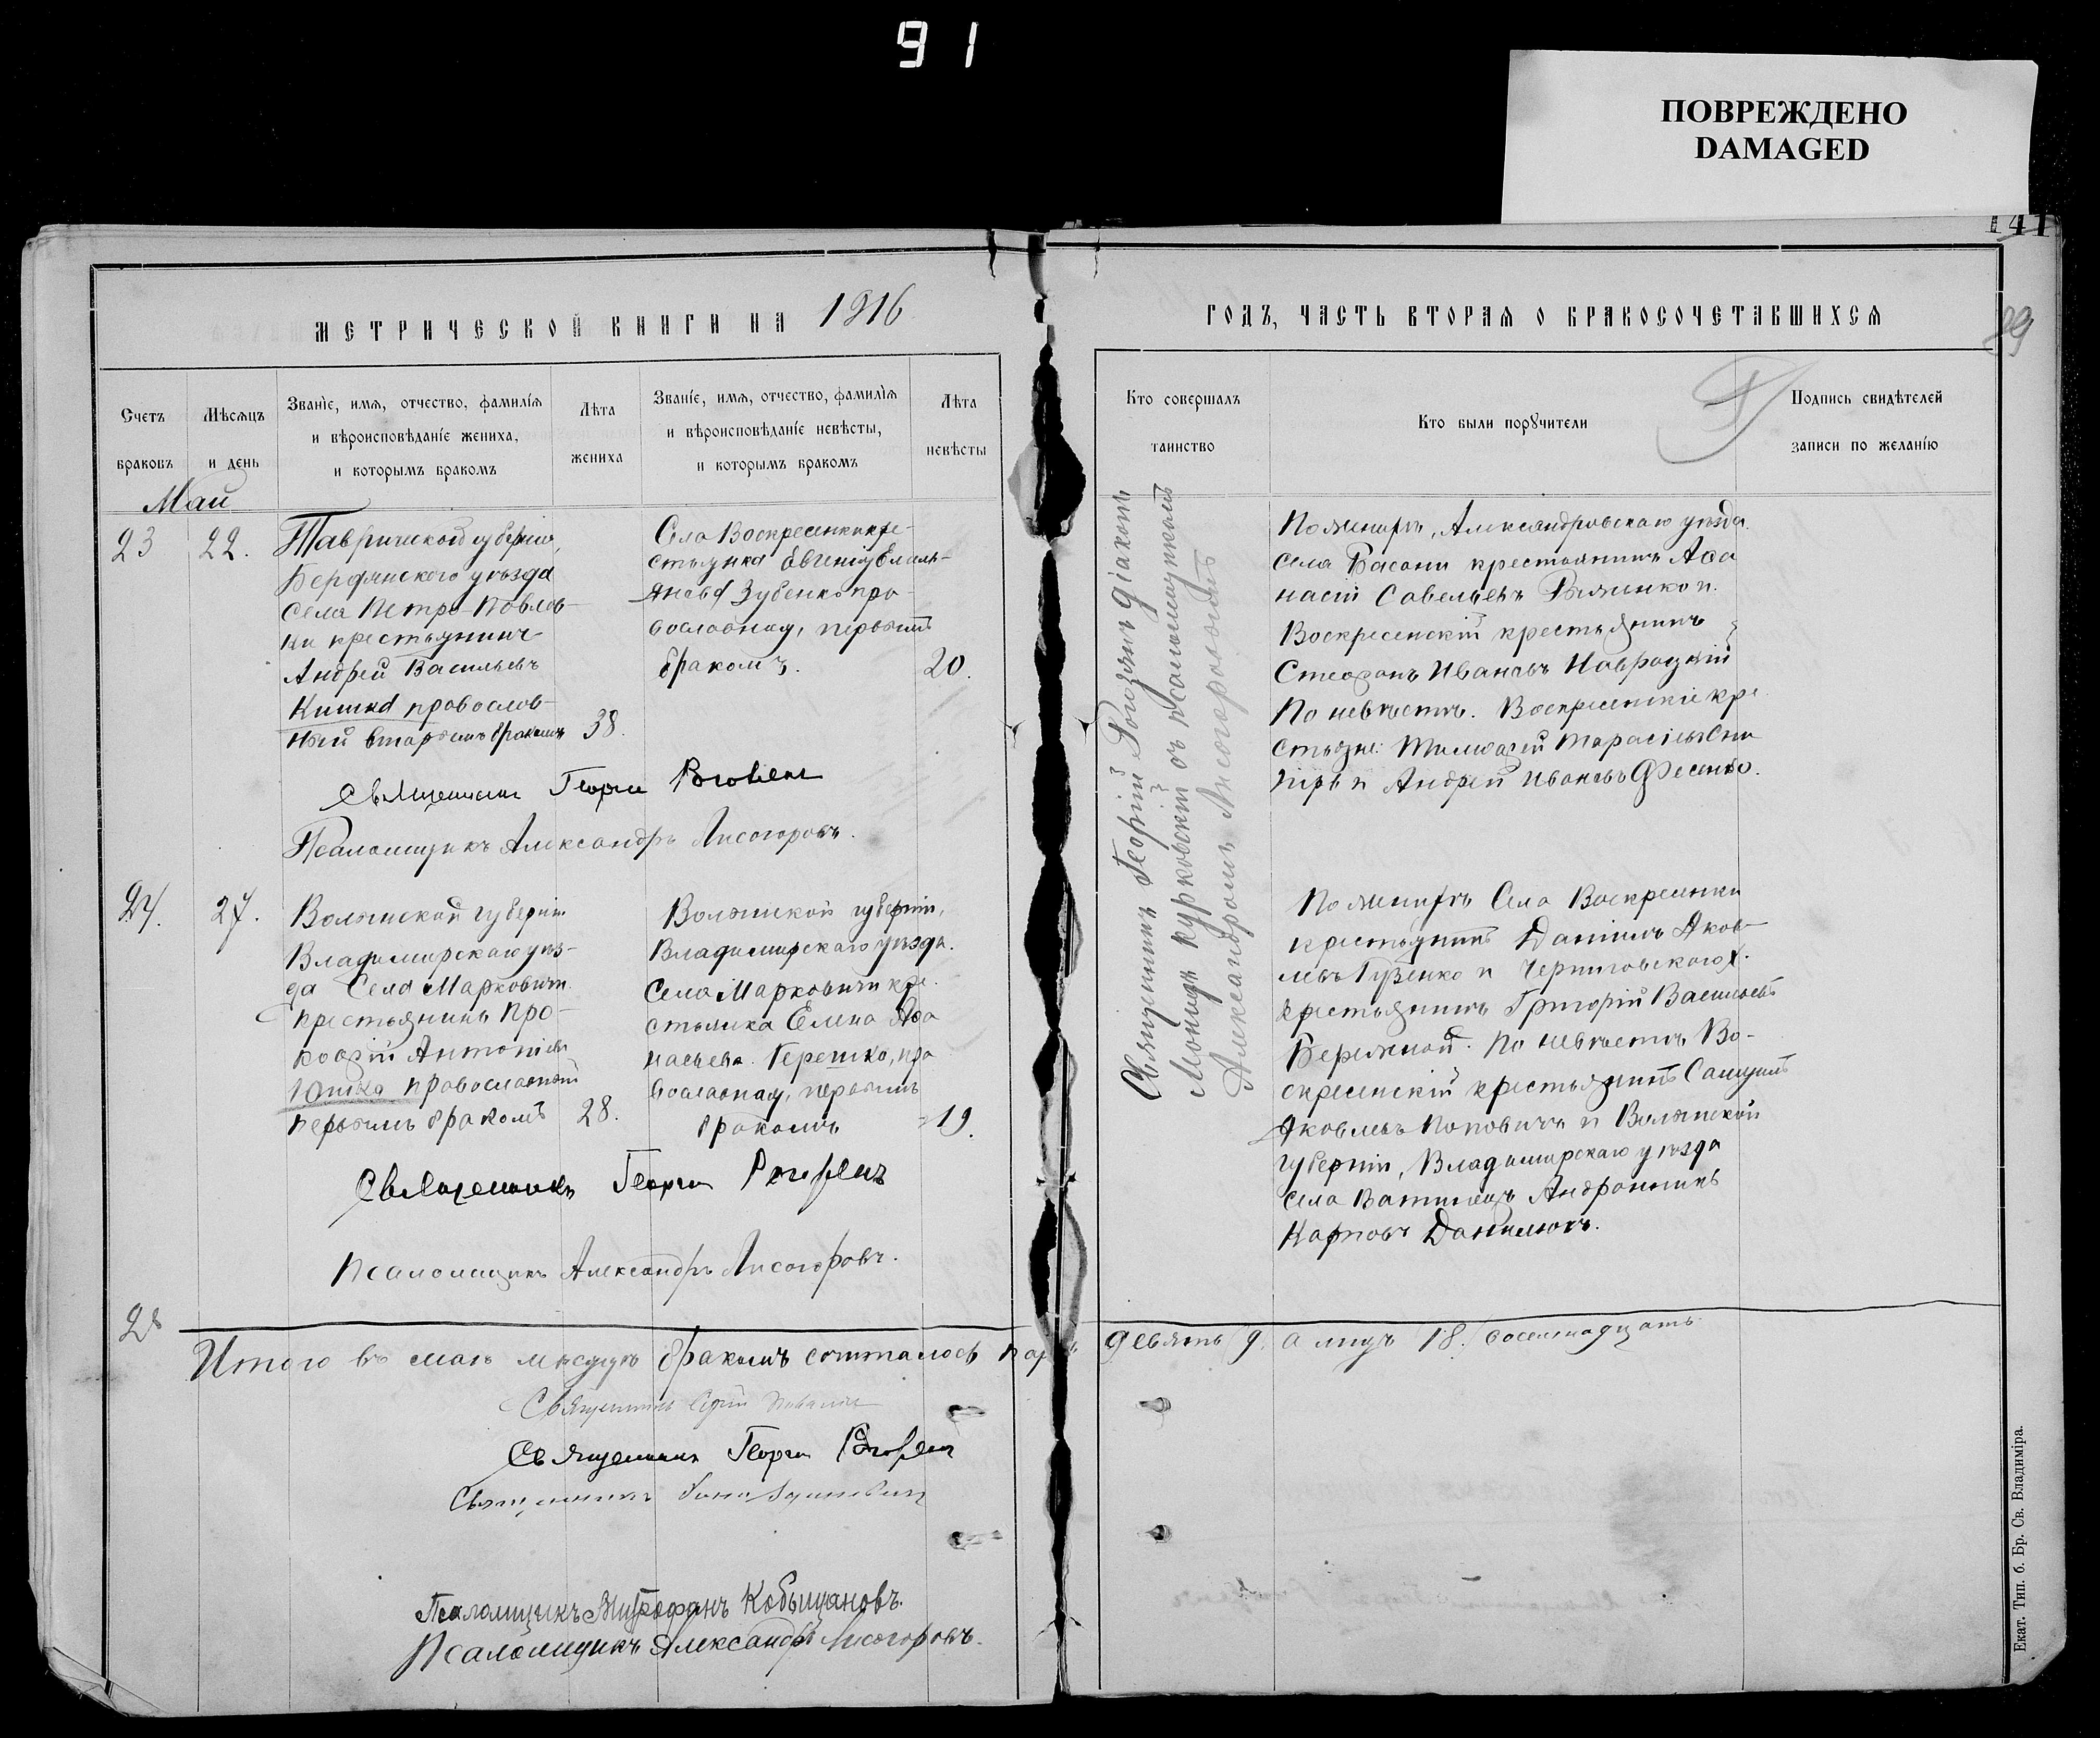 91
ПОВРЕЖДЕНО
DAMAGED
141
99
МЕТРИЧЕСКОЙ КНИГИ НА 1916
ГОДЪ, ЧАСТЬ ВТОРАЯ О БРАКОСОЧЕТАВШИХСЯ
Счетъ
браковъ
Мѣсяцъ
и день
Званіе, имя, отчество, фамилія
и вѣроисповѣданіе жениха,
и которымъ бракомъ
Лѣта
жениха
Званіе, имя, отчество, фамилія
и вѣроисповѣданіе невѣсты,
и которымъ бракомъ
Лѣта
невѣсты
Кто совершалъ
таинство
Кто были порꙋчители
Подпись свидѣтелей
записи по желанію
Май
23
22.
Таврической губерніи,
Бердянского уѣзда
села Петро-Павлов-
ки крестьянинъ
Андрей Васильевъ
Кишка православ-
ный вторымъ бракомъ
38.
Села Воскресенки кре-
стьянка Евгенія Емель-
янова Зубенко пра-
вославная, первымъ
бракомъ.
20.
Священникъ Георгій
Псаломщикъ Александръ Лисогоровъ.
Священникъ Георгій
Монацъ курковскій съ псаломщикомъ
Александромъ Лисогоровымъ
По женихѣ, Александровскаго уѣзда.
села Басани крестьянинъ Аѳа
насій Савельевъ и.
Воскресенскій крестьянинъ
Стефанъ Ивановъ Навроцкій
По невѣстѣ. Воскресенскіе кре
стьяне: Тимофей Тарасіевъ
и Андрей Ивановъ Фесенко.
24.
27.
Волынской губерніи
Владимирскаго уѣз-
да Села Марковичи
крестьянинъ Про-
кофій Антоніевъ
Юшко православный
первымъ бракомъ
28.
Волынской губерніи,
Владимирскаго уѣзда.
села Марковичи кре-
стьянка Елена Аѳа
насьева Герешко, пра
вославная, первымъ
бракомъ
19.
Священникъ Георгій
Псаломщикъ Александръ Лисогоровъ.
По женихѣ Села Воскресенки
крестьянинъ Даніилъ Яков-
левъ Гузенко и Черниговского х.
крестьянинъ Григорій Васильевъ
Бережной. По невѣстѣ Во-
скресенскій крестьянинъ
Яковлевъ Поповичъ и Волынской
губерніи, Владимирскаго уѣзда
села Андроникъ
Карповъ Данилюкъ.
Итого въ маѣ мѣсяцѣ бракомъ сочталось паръ девять 9, а лицъ 18. восемнадцать
Священникъ
Священникъ Георгій
Священникъ
Псаломщикъ Митрофанъ Кобыщановъ.
Псаломщикъ Александръ Лисогоровъ.
Екат. Тип. б. Бр. Св. Владиміра.